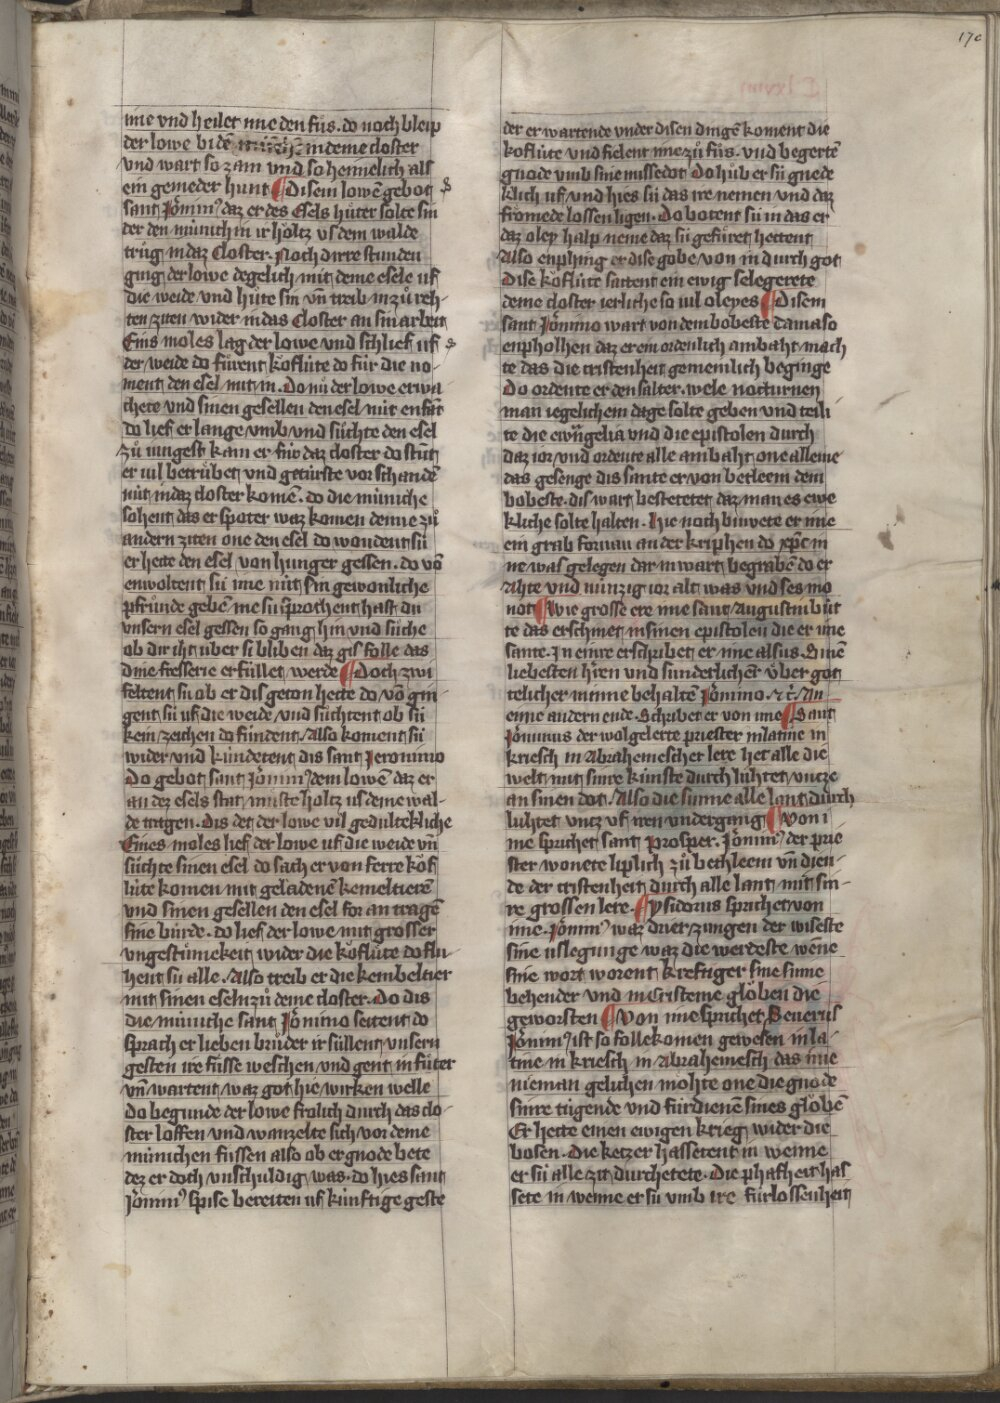 170
C lxviiij
ime vnd heilet ime den fůs. do noch bleip
der lowe bi den münchen in deme closter
vnd wart so zam vnd so heimelich als
ein gemeder hunt ¶ Disem lowē gebot
sant Jōnim⁹ daz er des Esels hůter solte sin
der den münich in ir holtz vs dem walde
trůg in daz Closter. Noch dirre stunden
ging der lowe degelich mit deme esele uf
die weide vnd hůte sin vñ treib in zů reh-
ten ziten wider in das Closter an sin arbeit
Eins moles lag der lowe vnd schlief uf
der weide do fůrent kǒflúte do für die no-
ment den esel mit in. Do nů der lowe erwa
chete vnd sinen gesellen den esel nüt enfāt
do lief er lange vmb vnd sůchte den esel
zů iungest kam er für daz closter do stůnt
er uil betrůbet vnd getürste vor schandē
nüt in daz closter komē. do die müniche
sohent das er spoter waz komen denne zů
andern ziten one den esel do wondent sü
er hette den esel von hunger gessen. do võ
enwoltent sü ime nüt sin gewonliche
pfrůnde gebē me sü sprochent hast du
vnsern esel gessen so gang hin vnd sůche
ob dir iht über si bliben daz gis folle das
dine fresserie erfüllet werde ¶ Doch zwi
feltent sü ob er dis geton hette do võ gin
gent sü uf die weide vnd sůchtent ob sü
kein zeichen do fündent / Also koment sü
wider vnd kündetent dis sant Jeronimo
Do gebot sant Jōnim⁹ dem lowē daz er
an dez esels stat můste holtz us deme wal-
de tragen. Dis det der lowe vil gedultekliche
Eines moles lief der lowe uf die weide vñ
sůchte sinen esel do sach er von ferre kǒf
lüte komen mit geladenē kemeltierē
vnd sinen gesellen den esel for an tragē
sine bürde. do lief der lowe mit grosser
vngestůmikeit wider die kǒflüte do fluͦ-
hent sü alle. Also treib er die kembeltier
mit sinen eseln zů deme closter. Do dis
die müniche sant Jōnimo seitent do
sprach er lieben brůder ir süllent vnsern
gesten ire füsse weschen vnd gent in fůter
vñ wartent waz got hie wirken welle
do begunde der lowe frolich durch das clo-
ster loffen vnd wanzelte sich vor deme
münichen füssen also ob er gnode bete
dez er doch vnschuldig was. do hies sant
Jōnim⁹ spise bereiten uf künftige geste
der er wartende vnder disen dingē koment die
koflüte vnd fielent ime zů fůs. vnd begertē
gnode vmb sine missedot Do hůb er sü gnede
klich uf vnd hies sü das ire nemen vnd daz
frömede lossen ligen. Do botent sü in das er
daz oley halp neme daz sü gefůret hettent
Also enphing er dise gobe von in durch got
Dise kǒflüte sattent ein ewig selegerete
deme closter ierliche so uil oleyes ¶ Disem
sant Jōnimo wart von dem bobeste damaso
enpholhen daz er ein ordenlich ambaht mach
te das die cristenheit gemeinlich beginge
Do ordente er den salter. wele nocturnen
man iegelichem dage solte geben vnd teili
te die ewāgelia vnd die epistolen durch
daz ior vnd ordente alle ambaht one alleine
das gesenge dis sante er von betleem dem
bobeste. dis wart bestetetet daz man es ewe
kliche solte halten. Hie noch buwete er ime
ein grab fornan an der kriphen do xp̄c in
ne was gelegen dar in wart begrabē do er
Ahte vnd nünzig ior alt was vnd ses mo
not ¶ wie grosse ere ime sant Augustin büt
te das erschinet in sinen epistolen die er ime
sante. In einre er schribet er ime alsus. Sinē
liebesten hern vnd sunderlichen über got
telicher minne behaltē Jōnimo. ⁊ c̄. An
eime andern ende. Schribet er von ime ¶ Sant
Jōnimus der wolgelerte priester in latine in
kriesch in Abrahemescher lere het alle die
welt mit sinre künste durch lühtet vncze
an sinen dot. Also die sunne alle lant durch
luhtet vncz uf iren vndergang ¶ von i
me sprichet sant Prosper. Jōnim⁹ der prie
ster wonete liplich zů bethleem vñ dien-
de der cristenheit durch alle lant mit sin-
re grossen lere. ¶ ysidorus sprichet von
ime. Jōnim⁹ waz drier zungen der wiseste
sine uslegunge waz die werdeste wene
sine wort worent kreftiger sine sinne
behender vnd in Cristeme glǒben die
geworsten ¶ von ime sprichet Seuerus
Jōnim⁹ ist so follekomen gewesen in la
tine in kriesch in Abrahemesch das ime
nieman gelichen mohte one die gnode
sinre tugende vnd fürdienē sines glǒbē
Er hette einen ewigen krieg wider die
bosen. die ketzer hassetent in wenne
er sü alle zit durchetete. Die phafheit has
sete in wenne er sü vmb ire fürlossenheit